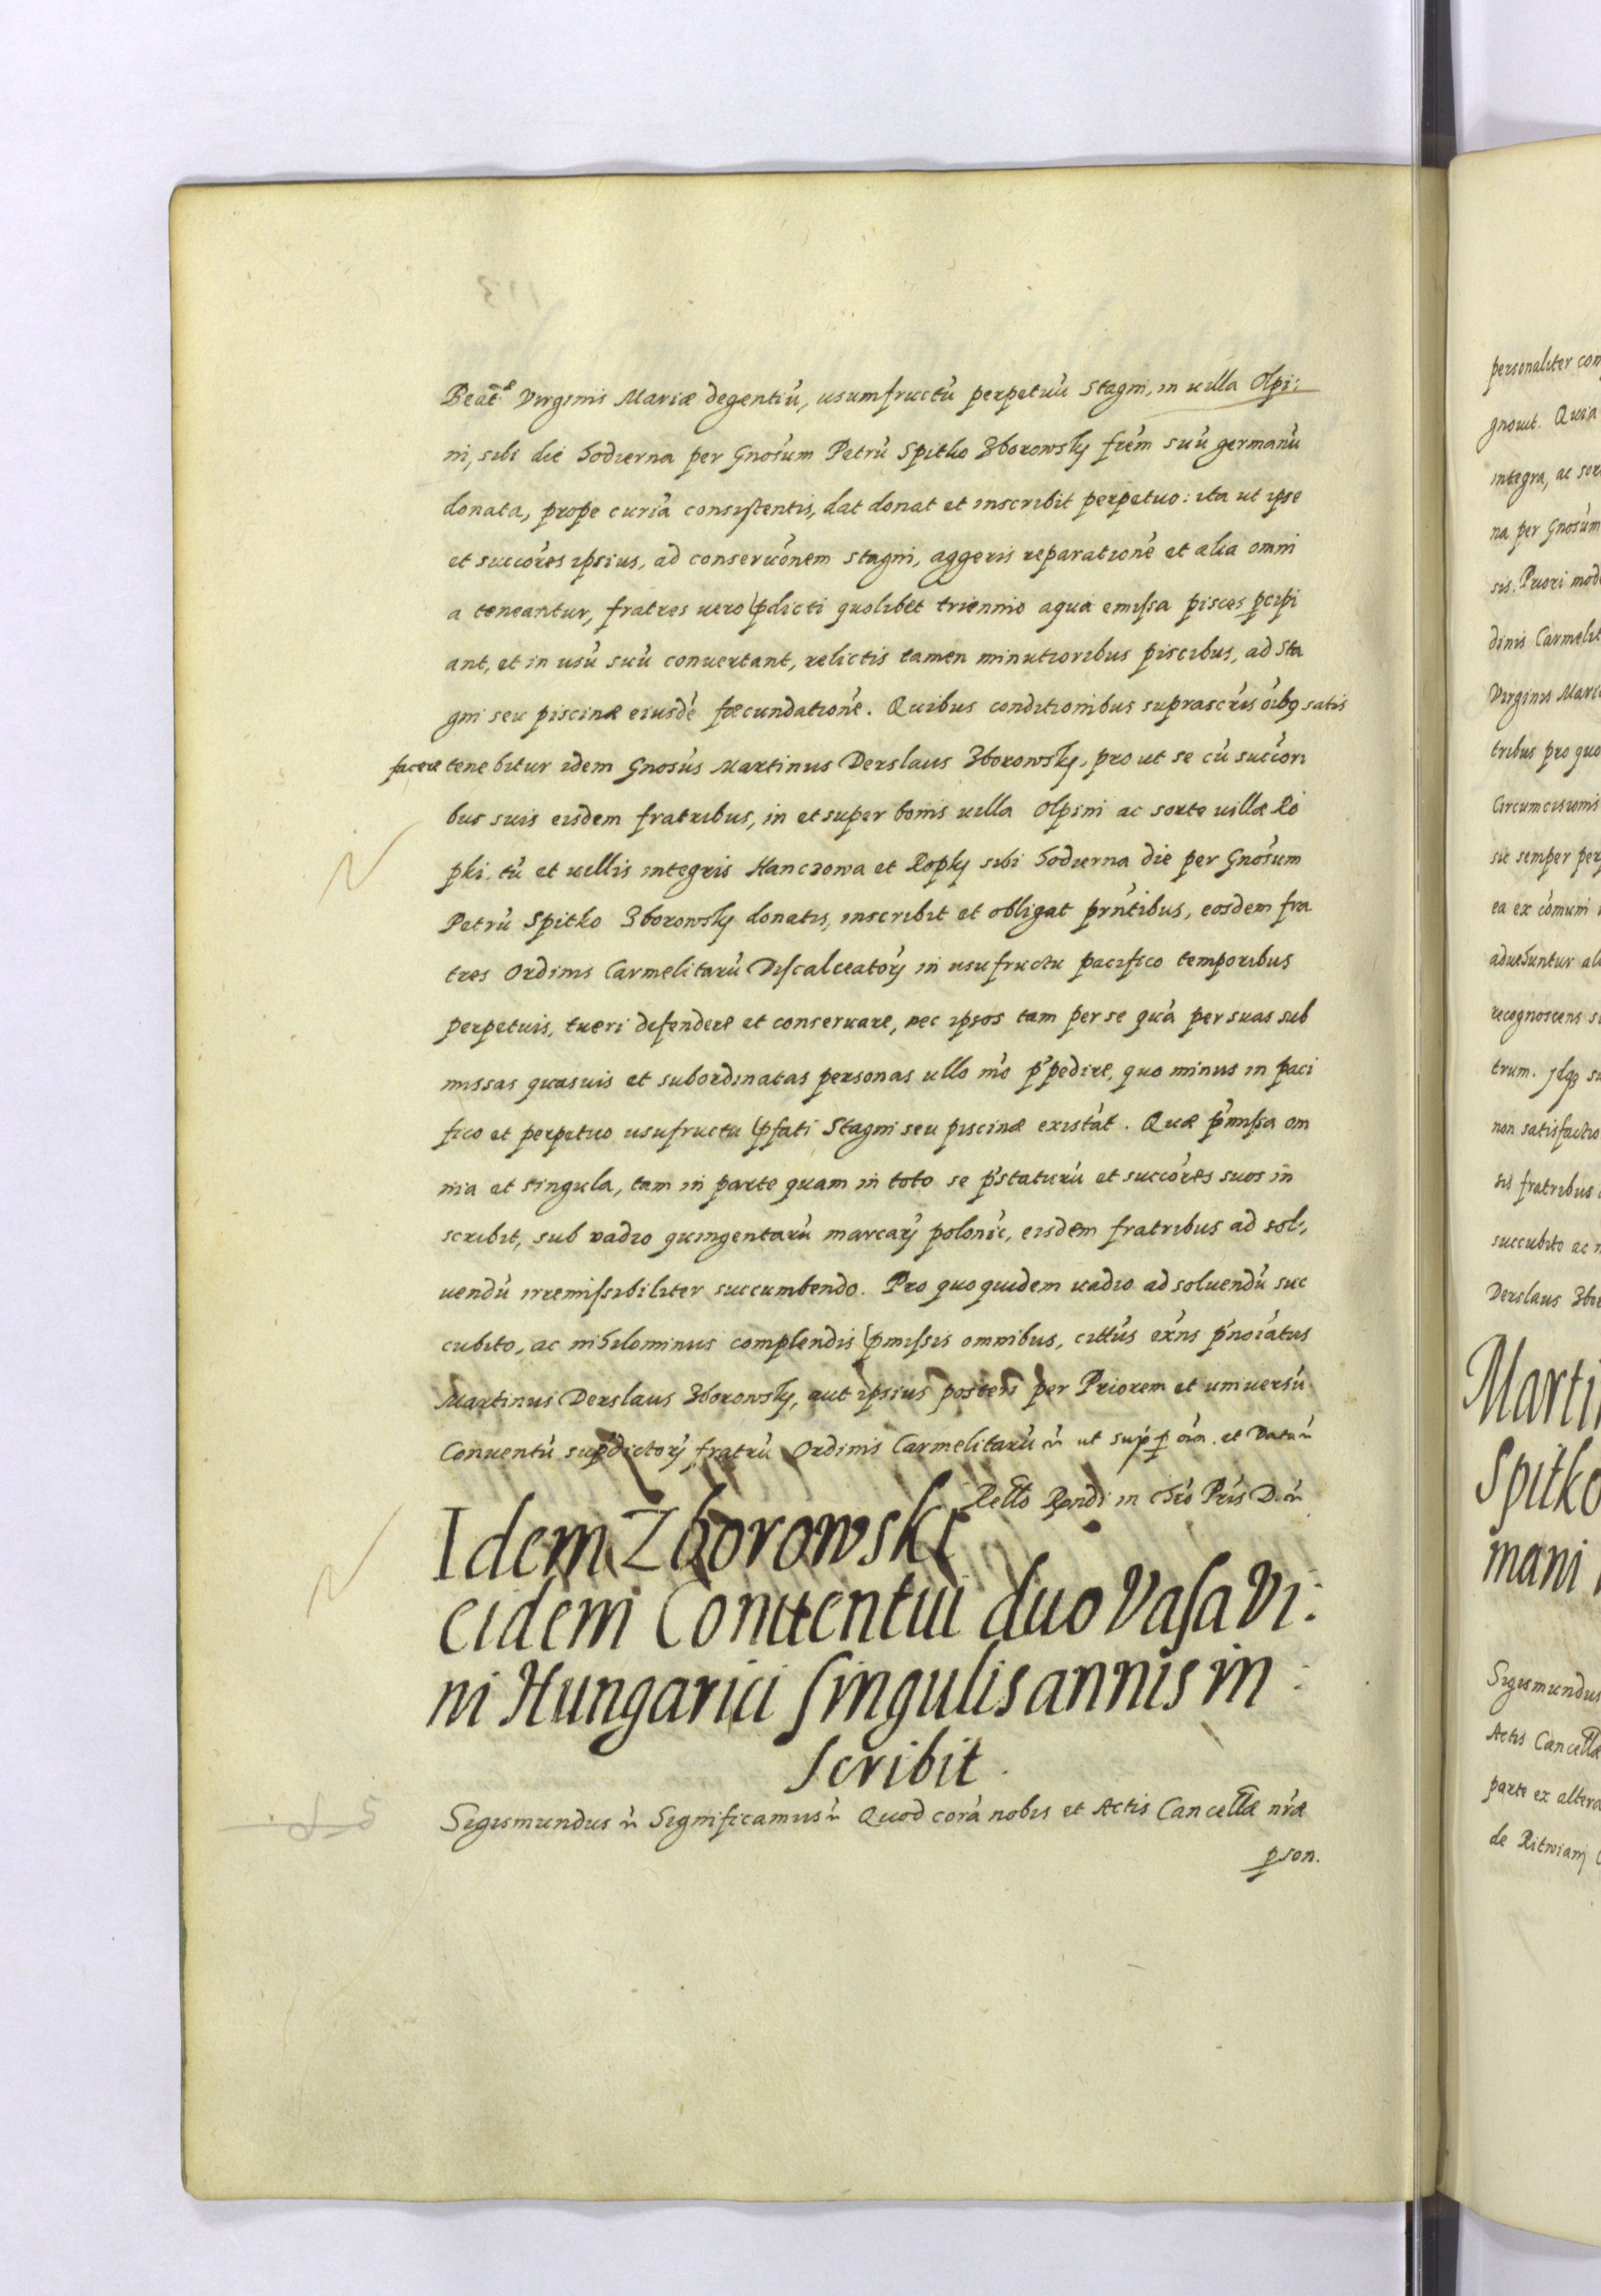 Beatæ Virginis Mariæ degentiũ, usumfructũ perpetuũ Stagni, in uilla Olpi:
ni, sibi die hodierna per Gnosum Petrũ Spitko Zborowsky frẽm suũ germanũ
donata, prope curiã consistentis, dat donat et inscribit perpetuo: ita ut ipse
et succõres ipsius, ad conseruõnem stagni, aggeris reparationẽ et alia omni
a teneantur, fratres uero pdicti quolibet triennio aqua emissa pisces pcipi
ant, et in usũ suũ conuertant, relictis tamen minutioribus piscibus, ad Sta
gni seu piscinæ eiusdẽ fœcundationẽ. Quibus conditionibus suprascrĩs õibꝰ satis
facere tenebitur idem Gnosus Martinus Derslaus Zborowsky, pro ut se cũ succõri
bus suis eisdem fratribus, in et super bonis uilla Olpini ac sorte uillæ Ro
pki, tũ et uillis integris Hanczowa et Ropky sibi hodierna die per Gnosum
Petrũ Spitko Zborowsky donatis, inscribit et obligat prñtibus, eosdem fra
tres Ordinis Carmelitarũ Discalceatorꝝ in usufructu pacifico temporibus
perpetuis, tueri defendere et conseruare, nec ipsos tam per se quã per suas sub
missas quasuis et subordinatas personas ullo mõ ppedire, quo minus in paci
fico et perpetuo usufructu pfati Stagni seu piscinæ existãt. Quæ pmissa om
nia et singula, tam in parte quam in toto se pstaturũ et succõres suos in
scribit, sub uadio quingentarũ marcarꝝ polonic, eisdem fratribus ad sol,
uendũ irremissibiliter succumbendo. Pro quo quidem uadio ad soluendũ suc
cubito, ac nihilominus complendis pmissis omnibus, cittũs exñs pnoĩatus
Martinus Derslaus Zborowsky, aut ipsius posteri per Priorem et uniuersũ
Conuentũ supdictorꝝ fratrũ Ordinis Carmelitarũ ñ ut sup p oĩa. et Datũ ñ
Rellõ Rẽndi in Chrõ Prĩs D. ñ
Idem Zborowski
eidem Conuentui duo Vasa Vi:
ni Hungarici singulis annis in:
scribit.
Sigismundus ñ Significamus ñ Quod corã nobis et Actis Cancellæ nr̃æ
pson.
personaliter con
gnouit. Quia
integra, ac sor
na per Gnosum
sis. Priori mod
dinis Carmelit
Virginis Mari
tribus pro quo
Circumcisionis
sic semper per
ea ex comuni
aduehuntur al
recognoscens s
trum. Idqꝫ su
non satisfactio
sis fratribus
succubito ac n
Derslaus Zbor
Marti
Spitko
mani
Sigismundus
Actis Cancellæ
parte ex altera
de Ritwiany